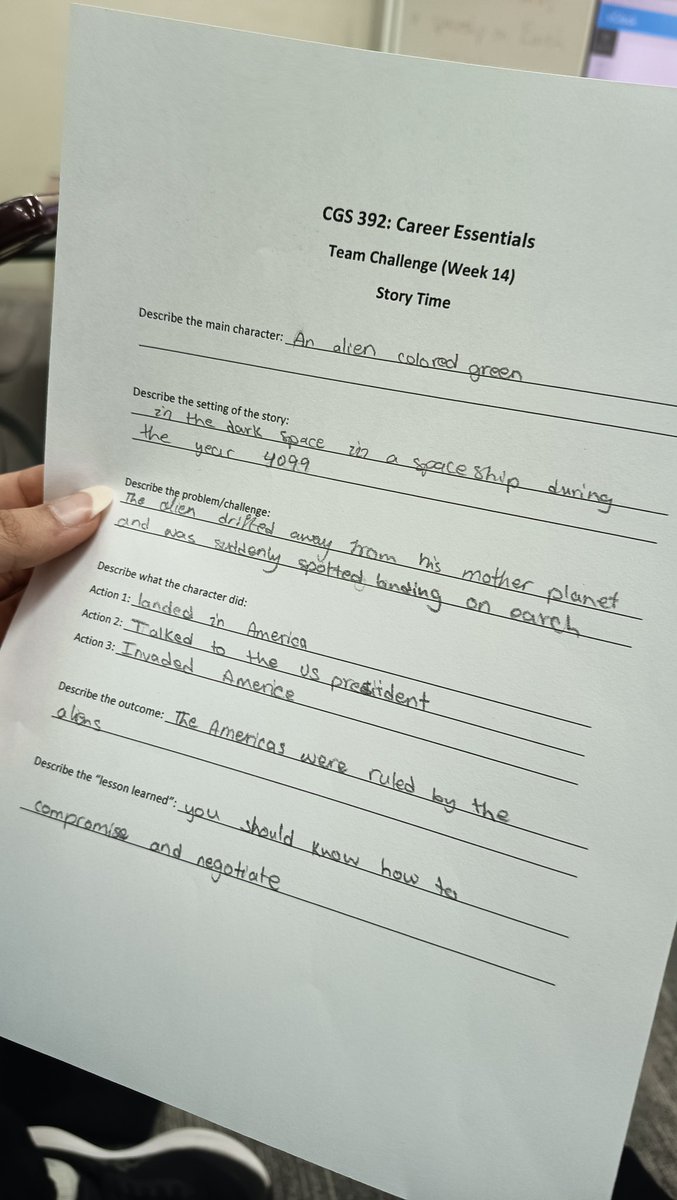 CGS 392: Career Essentials
Team Challenge (Week 14)
Story Time
Describe the main character: An alien colored green
Describe the setting of the story:
in the dark space in a spaceship during
the year 4099
Describe the problem/challenge:
The alien drifted away from his mother planet
and was suddenly spotted landing on earch
Describe what the character did:
Action 1: landed in America
Action 2: Talked to the US presiident
Action 3: Invaded Americe
Describe the outcome: The Americas were ruled by the
aliens
Describe the "lesson learned": you should know how to
compromise and negotiate